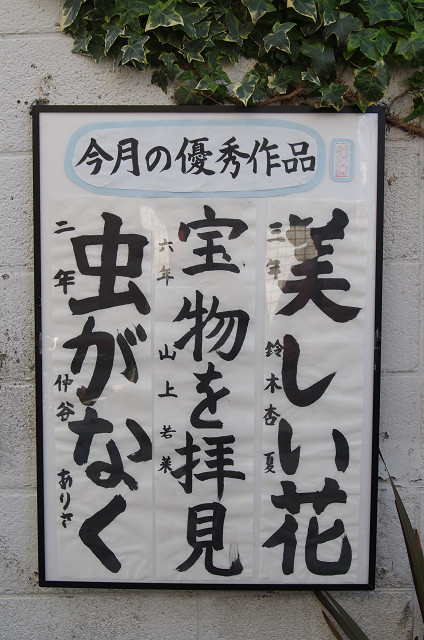 今月の優秀作品
美しい花
三年 鈴木杏夏
宝物を拝見
六年 山上若菜
虫がなく
二年 仲谷ありさ